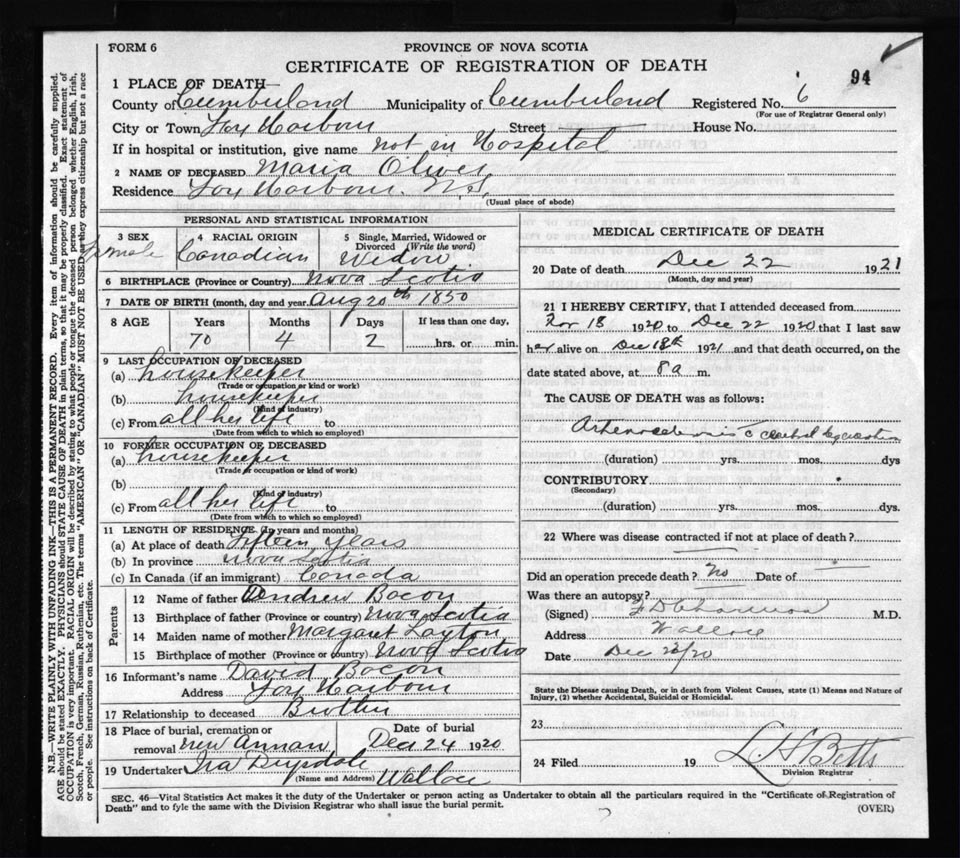 FORM 6
PROVINCE OF NOVA SCOTIA
94
CERTIFICATE OF REGISTRATION OF DEATH
1 PLACE OF DEATH—
County of Cumberland Municipality of Cumberland Registered No. 6
(For use of Registrar General only)
City or Town Fox Harbour Street House No.
If in hospital or institution, give name not in Hospital
2 NAME OF DECEASED Maria Oliver
Residence Fox Harbour. N.S.
(Usual place of abode)
PERSONAL AND STATISTICAL INFORMATION
3 SEX 4 RACIAL ORIGIN 5 Single, Married, Widowed or Divorced (Write the word)
Female Canadian Widow
6 BIRTHPLACE (Province or Country) Nova Scotia
7 DATE OF BIRTH (month, day and year) Aug 20th 1850
8 AGE Years Months Days If less than one day,
70 4 2 hrs. or min.
9 LAST OCCUPATION OF DECEASED
(a) housekeeper
(Trade or occupation or kind or work)
(b) housekeeper
(Kind of industry)
(c) From all her life to
(Date from which to which so employed)
10 FORMER OCCUPATION OF DECEASED
(a) housekeeper
(Trade or occupation or kind of work)
(b)
(Kind of industry)
(c) From all her life to
(Date from which to which so employed)
11 LENGTH OF RESIDENCE (In years and months)
(a) At place of death fifteen years
(b) In province Nova Scotia
(c) In Canada (if an immigrant) Canada
Parents
12 Name of father Andrew Bacon
13 Birthplace of father (Province or country) Nova Scotia
14 Maiden name of mother Margaret Layton
15 Birthplace of mother (Province or country) Nova Scotia
16 Informant's name David Bacon
Address Fox Harbour
17 Relationship to deceased Brother
18 Place of burial, cremation or removal Date of burial
New Annan Dec 24 1920
19 Undertaker Ira Drysdale
(Name and Address) Wallace
MEDICAL CERTIFICATE OF DEATH
20 Date of death Dec 22 1921
(Month, day and year)
21 I HEREBY CERTIFY, that I attended deceased from
Nov 18 1920 to Dec 22 1920 that I last saw
her alive on Dec 18th 1921 and that death occurred, on the
date stated above, at 8 a m.
The CAUSE OF DEATH was as follows:
(duration) yrs. mos. dys
CONTRIBUTORY
(Secondary)
(duration) yrs. mos. dys.
22 Where was disease contracted if not at place of death?
Did an operation precede death? No Date of
Was there an autopsy?
(Signed) M.D.
Address Wallace
Date Dec 23/20
State the Disease causing Death, or in death from Violent Causes, state (1) Means and Nature of
Injury, (2) whether Accidental, Suicidal or Homicidal.
23
24 Filed 19 L H Betts
Division Registrar
SEC. 46—Vital Statistics Act makes it the duty of the Undertaker or person acting as Undertaker to obtain all the particulars required in the "Certificate of Registration of
Death" and to fyle the same with the Division Registrar who shall issue the burial permit.
(OVER)
N.B.—WRITE PLAINLY WITH UNFADING INK—THIS IS A PERMANENT RECORD. Every item of information should be carefully supplied.
AGE should be stated EXACTLY. PHYSICIANS should STATE CAUSE OF DEATH in plain terms, so that it may be properly classified. Exact statement of
OCCUPATION is very important. RACIAL ORIGIN will be described by stating to what people or tongue the deceased person belonged whether English, Irish,
Scotch, French, German, Russian, Ruthenian, etc. The terms "AMERICAN" OR "CANADIAN" MUST NOT BE USED as they express citizenship but not a race
or people. See instructions on back of Certificate.